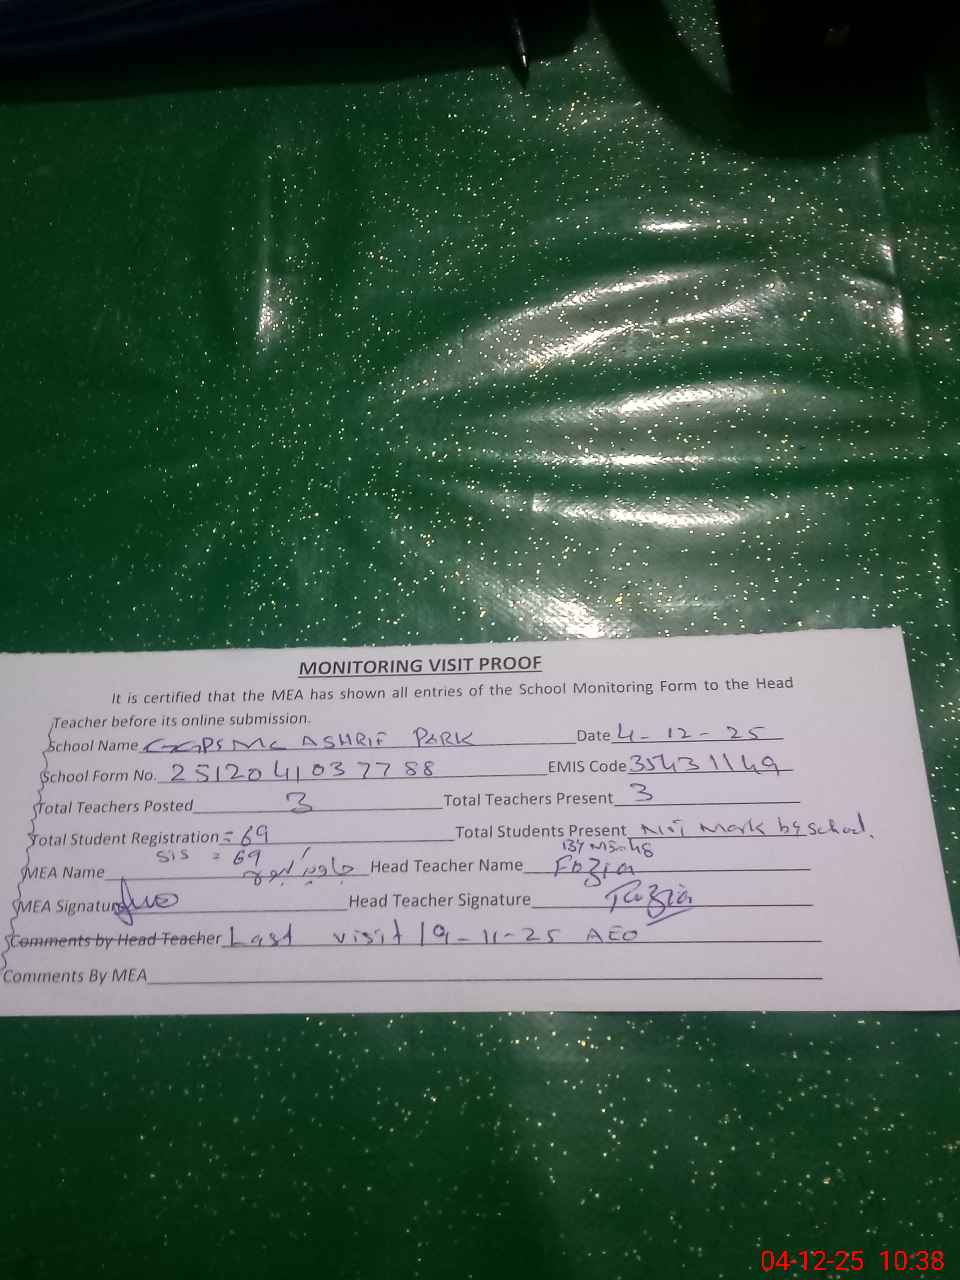 MONITORING VISIT PROOF
It is certified that the MEA has shown all entries of the School Monitoring Form to the Head
Teacher before its online submission.
School Name GGPS MC ASHRIF PARK Date 4-12-25
School Form No. 2512041037788 EMIS Code 35431149
Total Teachers Posted 3 Total Teachers Present 3
Total Student Registration = 69 Total Students Present Not Mark by school.
SIS = 69 by M = 48
MEA Name Head Teacher Name Fozia
MEA Signature Head Teacher Signature Fozia
Comments by Head Teacher Last visit 19-11-25 AEO
Comments By MEA
04-12-25 10:38